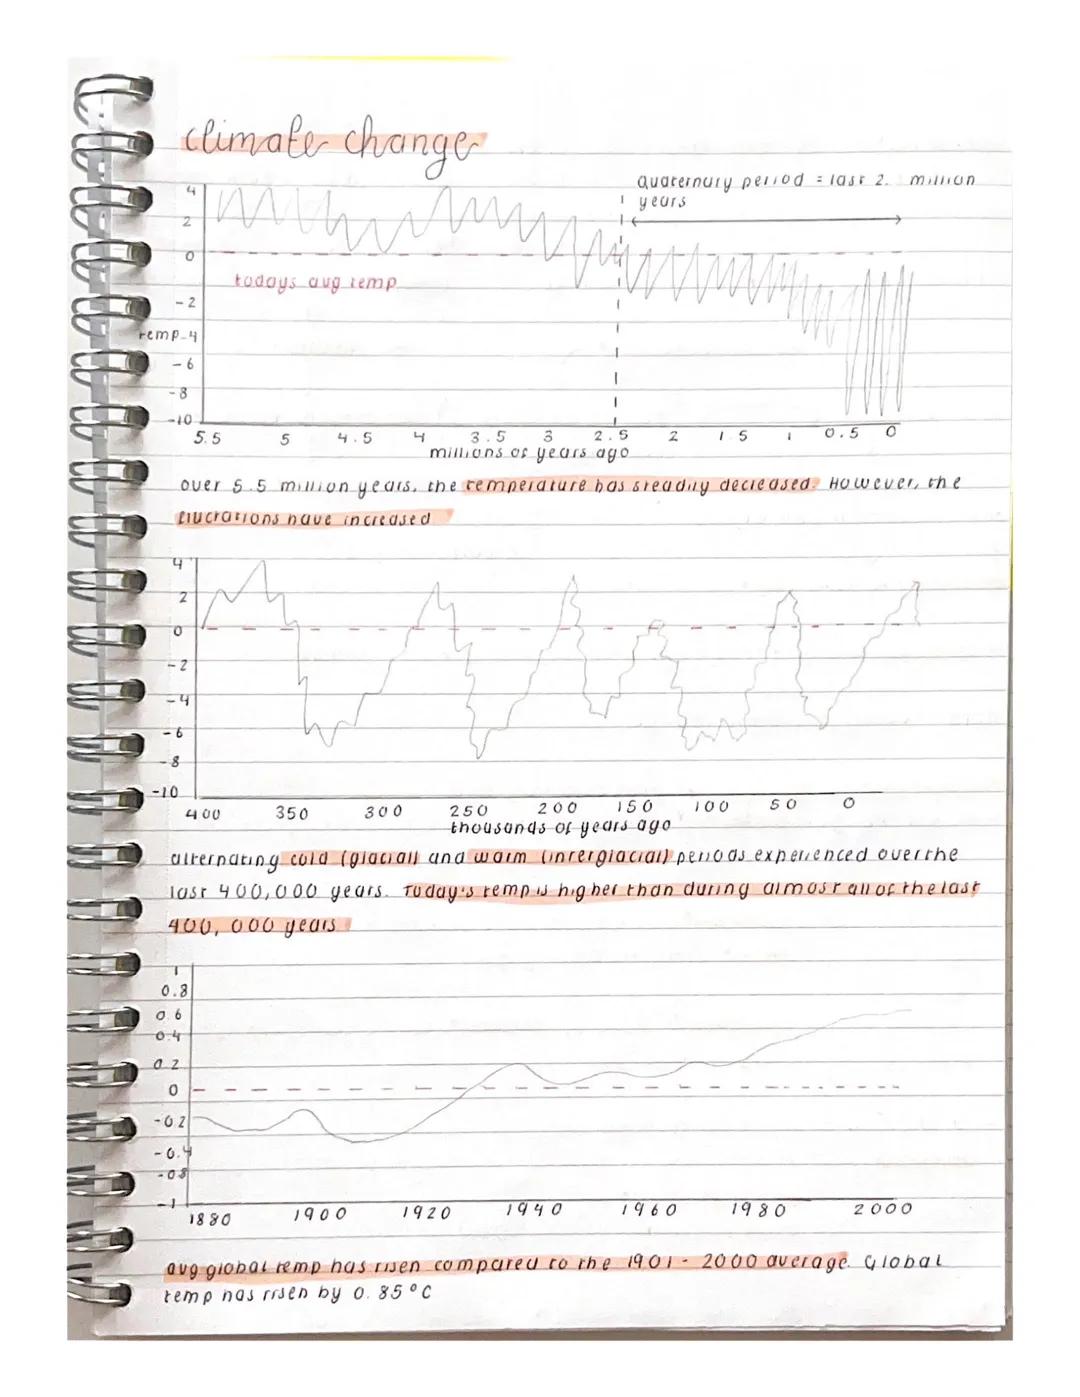 climate change
Quaternary period = last 2. million
years
4
2
0
todays avg temp
-2
temp -4
-6
-8
-10
5.5 5 4.5 4 3.5 3 2.5 2 1.5 1 0.5 0
millions of years ago
over 5.5 million years, the temperature has steadily decreased. However, the
fluctations have increased
4
2
0
-2
-4
-6
-8
-10
400 350 300 250 200 150 100 50 0
thousands of years ago
alternating cold (glacial) and warm (interglacial) periods experienced over the
last 400,000 years. Today's temp is higher than during almost all of the last
400,000 years
1
0.8
0.6
0.4
0.2
0
-0.2
-0.4
-0.8
-1
1880 1900 1920 1940 1960 1980 2000
avg global temp has risen compared to the 1901 - 2000 average. Global
temp has risen by 0.85°C